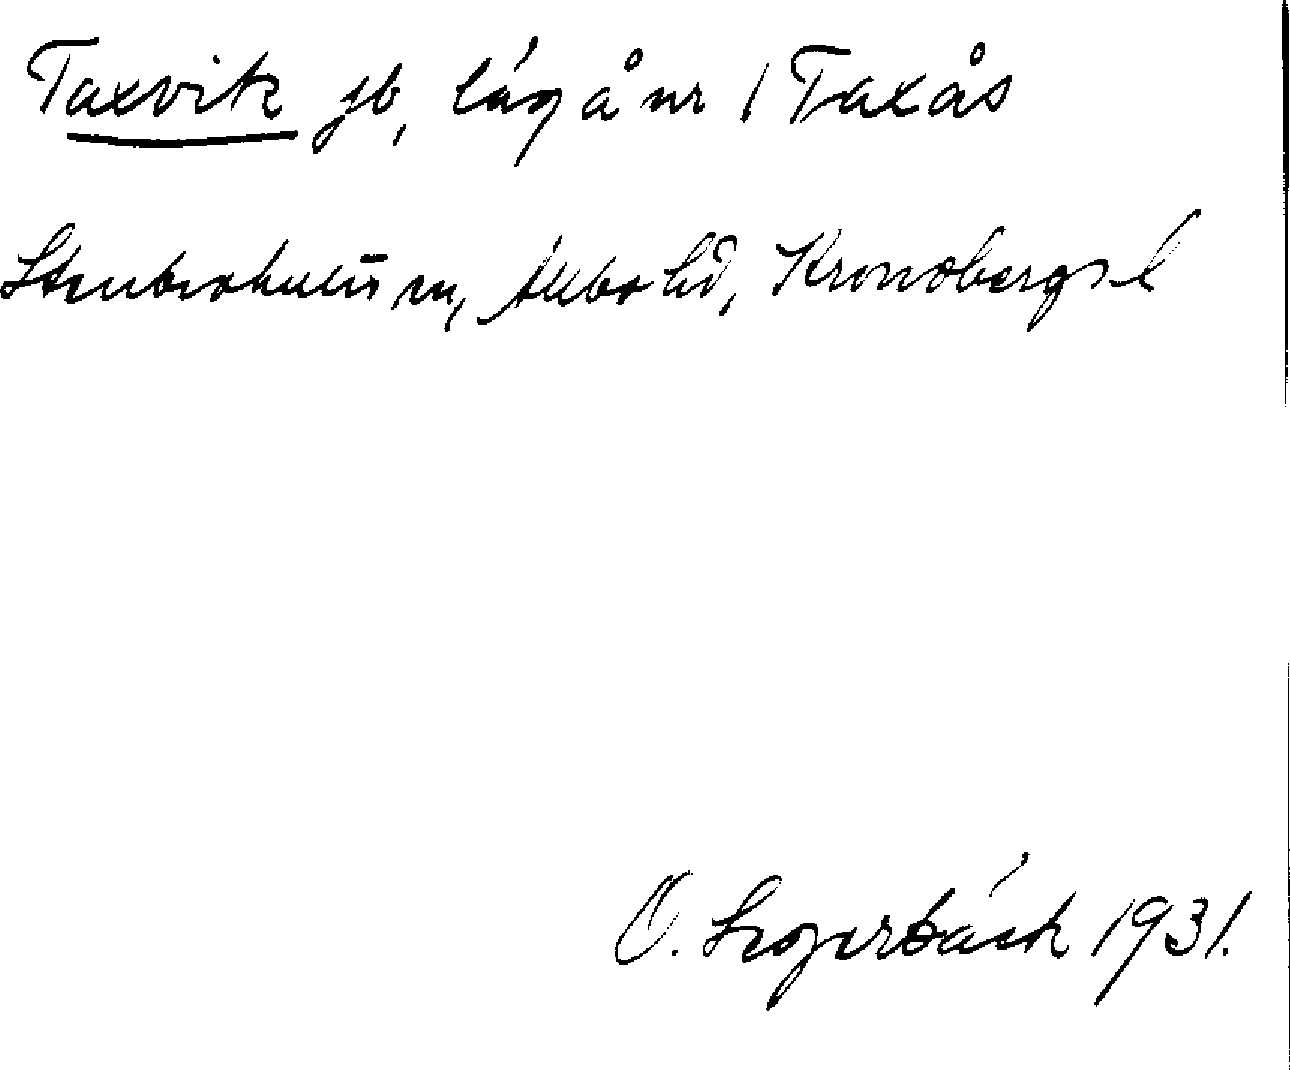 Taxvik jb, låg å nr 1 Taxås
Stenbrohults sn, Allbo hd, Kronobergs l
O. Segerbäck 1931.